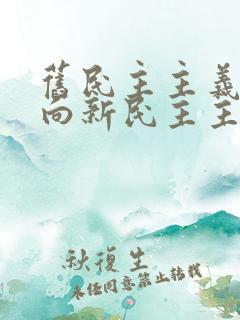 舊民主主義
向新民主主
秋復生
未經同意禁止轉載